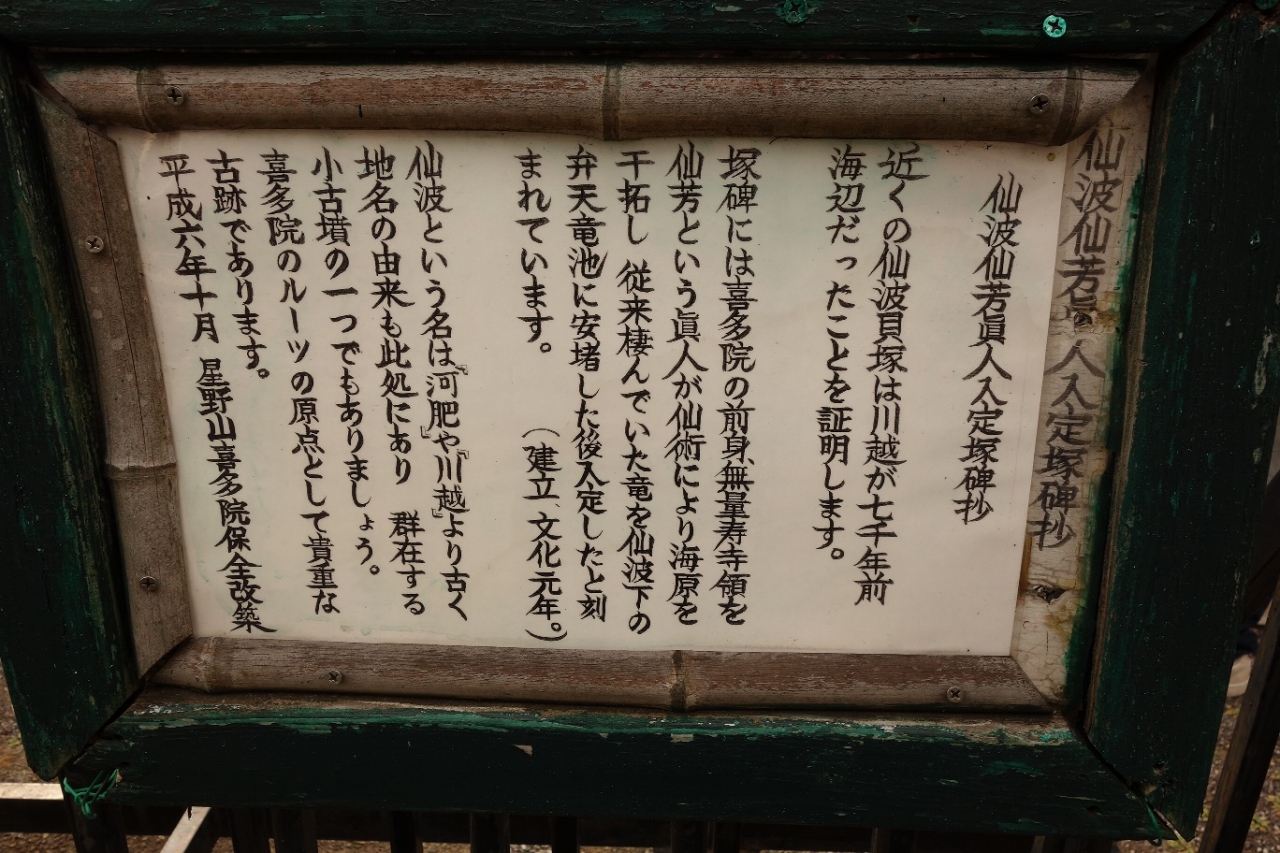 仙波仙芳眞人入定塚碑抄
仙波仙芳眞人入定塚碑抄
近くの仙波貝塚は川越が七千年前
海辺だったことを証明します。
塚碑には喜多院の前身、無量寿寺領を
仙芳という眞人が仙術により海原を
干拓し 従来棲んでいた竜を仙波下の
弁天竜池に安堵した後入定したと刻
まれています。 （建立、文化元年。）
仙波という名は『河肥』や『川越』より古く
地名の由来も此処にあり 群在する
小古墳の一つでもありましょう。
喜多院のルーツの原点として貴重な
古跡であります。
平成六年十月 星野山喜多院保全改築